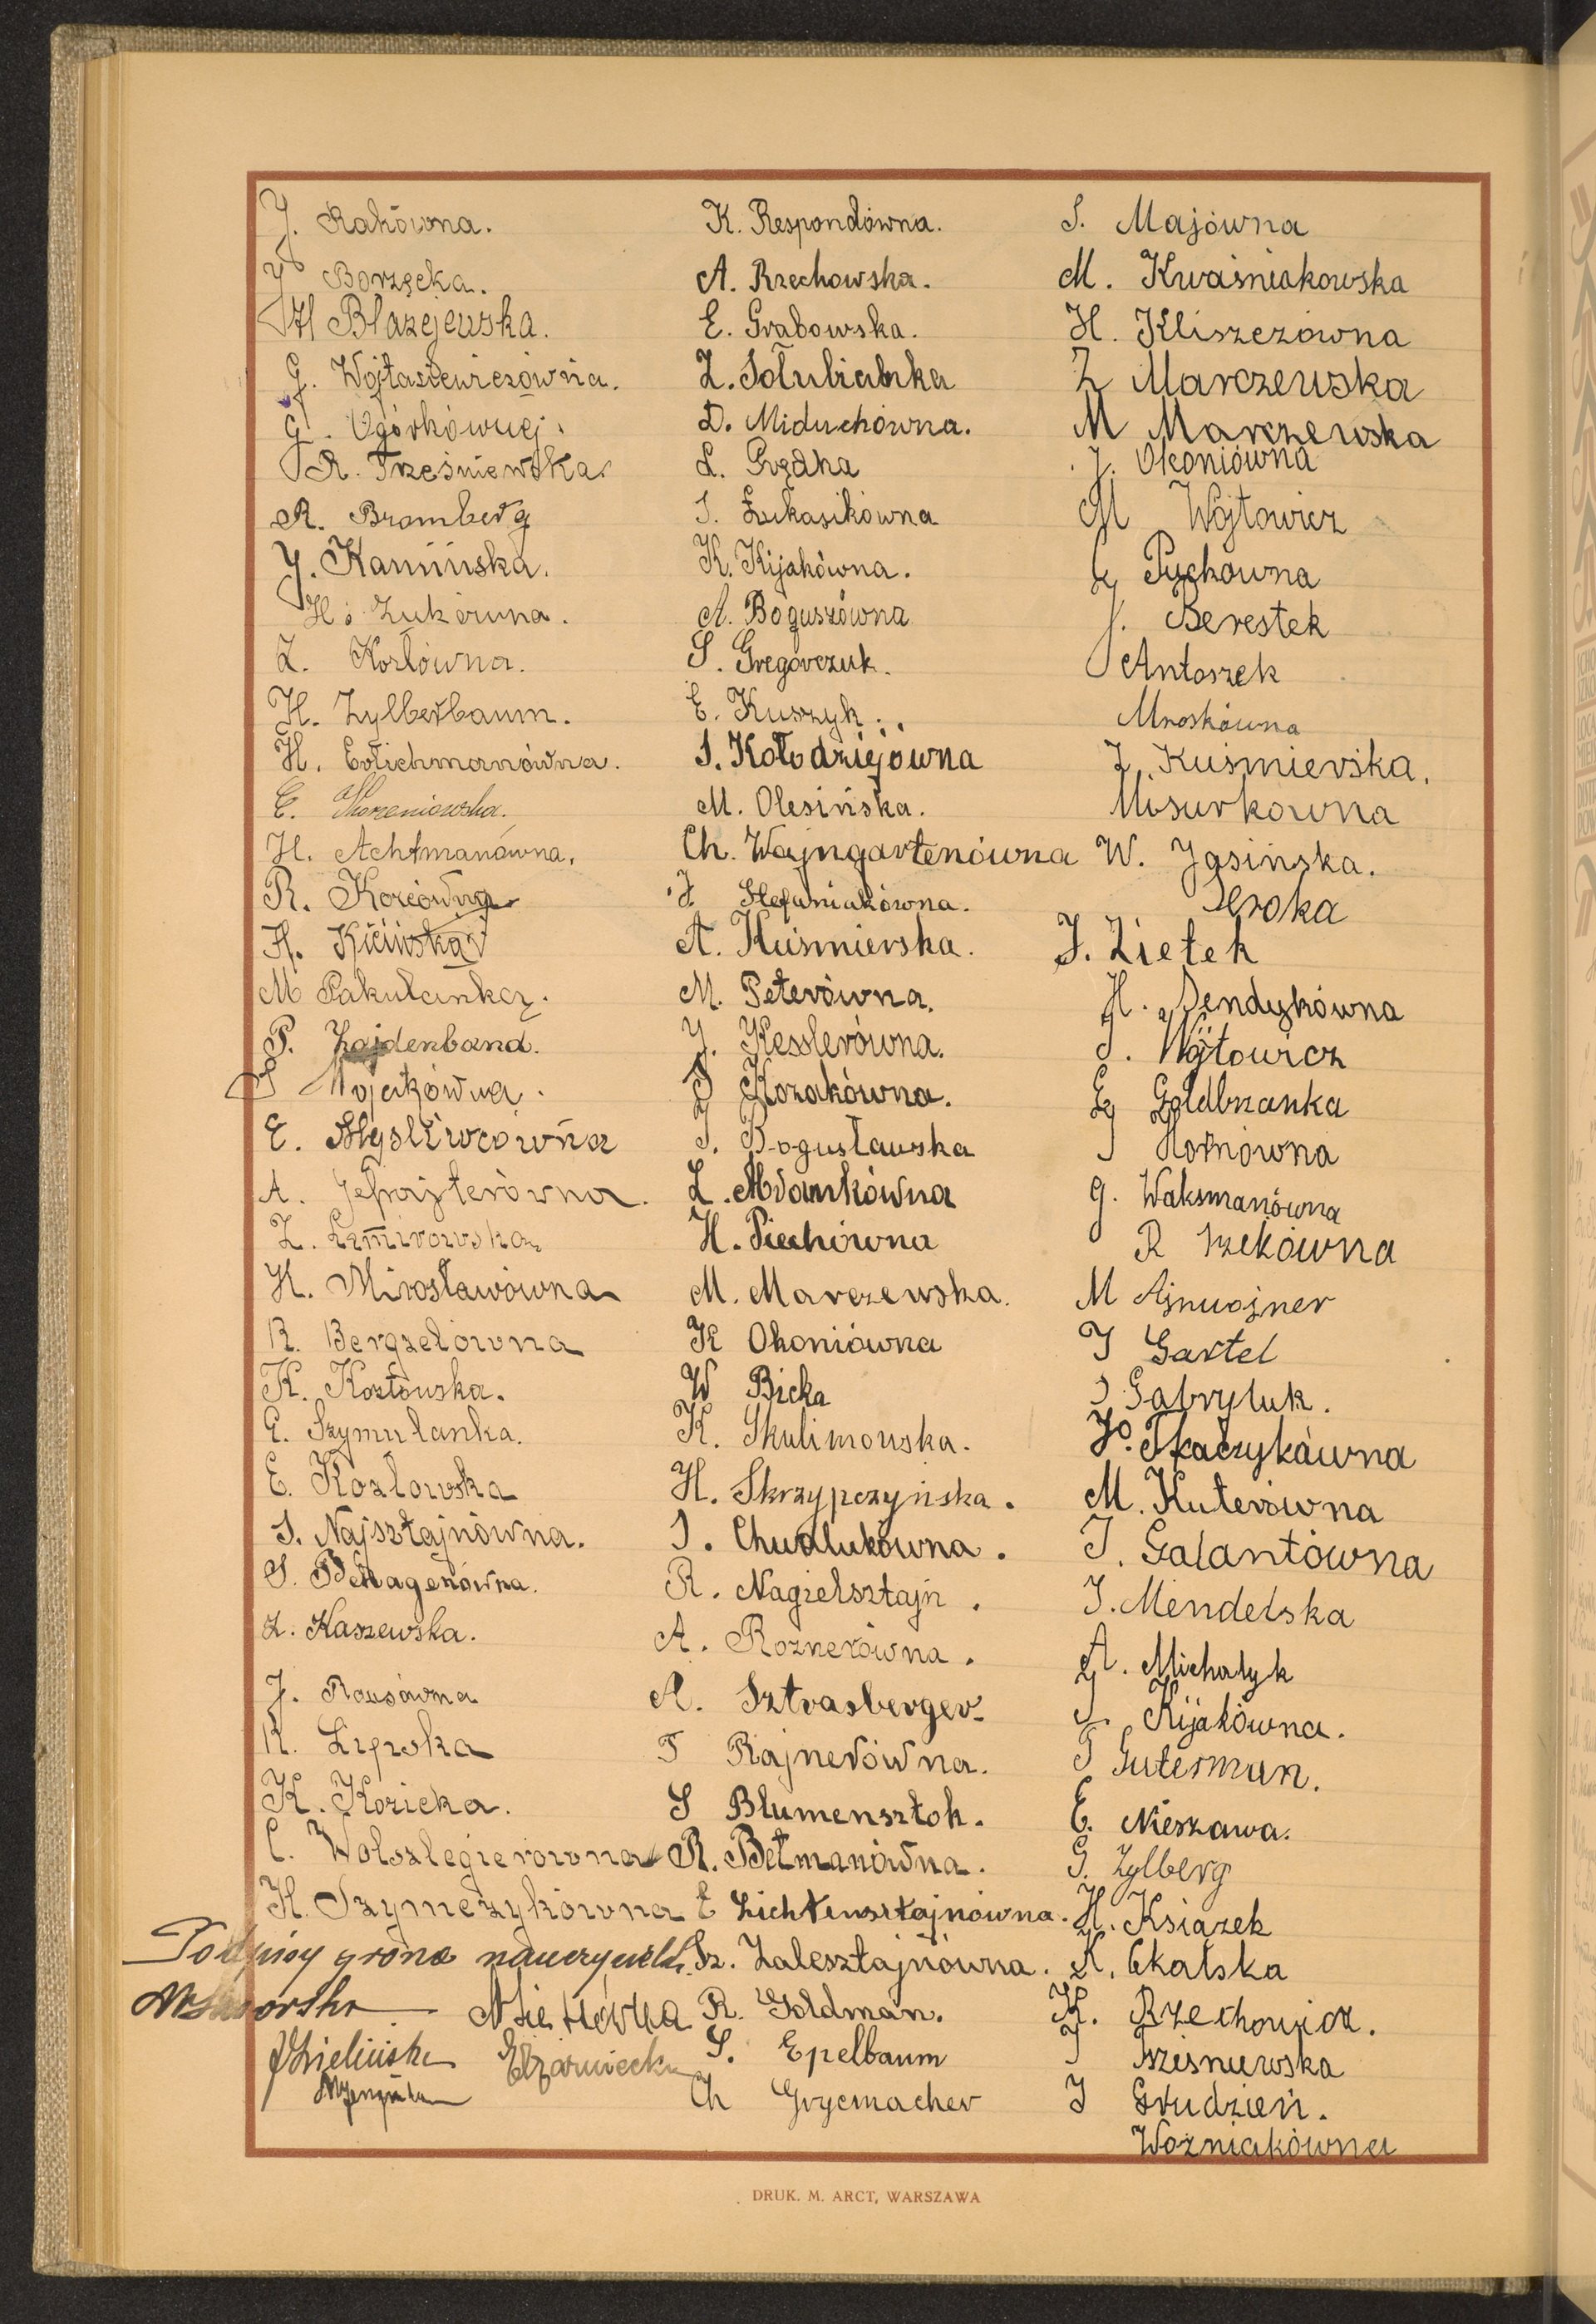 J. Rakówna.
J. Borzęcka.
H Błażejewska.
G. Wojtasiewiczówna.
G. Ogórkównej.
R. Trześniewska.
R. Bromberg
J. Kamińska.
H. Żukówna.
Z. Kozłówna.
H. Zylberbaum.
H. Erlichmanówna.
E. Skorzeniowska.
H. Achtmanówna.
R. Koziówna
H. Kicińska
M Pakulanka.
P. Zajdenband.
S Wojcikówna.
E. Mysliwcówna
A. Jefrajterówna.
Z.
H. Mirosławówna
R. Bergzelówna
K. Kozłowska.
G. Szymulanka.
E. Kozlowska
S. Najsztajnówna.
S.
Z. Kaszewska.
J. Rousówna
R. Lipska
K. Kozicka.
C. Wolszlegierowna
H. Szymczykówna
Podpisy grona nauczyciels.
Zielińska
K. Respondówna.
A. Rzechowska.
E. Grabowska.
Z. Sołubianka
D. Miduchówna.
L. Prządka
S. Łukasikówna
K. Kijakówna.
A. Boguszówna
S. Gregorczuk.
E. Kuszyk.
S. Kołodziejówna
M. Olesińska.
Ch. Wajngartenówna
J. Stefaniakówna.
A. Kuśmierska.
M. Peterówna.
J. Kesslerówna.
J Kozakówna.
J. Bogusławska
L. Adamkówna
H. Piechówna
M. Marczewska.
K Okoniówna
W Bicka
K. Skulimowska.
H. Skrzypczyńska.
J. Chudlukówna.
R. Nagielsztajn.
A. Roznerówna.
A. Sztrasberger
T Rajnerówna.
S Blumensztok.
R. Betmanówna.
E Lichtensztajnówna.
Sz. Zalesztajnówna.
R. Goldman.
S. Epelbaum
Ch Grycmacher
S. Majówna
M. Kwaśniakowska
H. Kliszczówna
Z Marczewska
M Marczewska
J. Okoniówna
M Wójtowicz
G Puchówna
J. Berestek
Antoszek
Mroskówna
Z. Kuśmierska.
Misurkowna
W. Jasińska.
Sroka
J. Zietek
H. Dendykówna
J. Wójtowicz
E Goldbzanka
J Hornówna
G. Waksmanówna
R Szekówna
M Ajnwojner
J Gartel
J Gabryluk.
H. Tkaczykówna
M. Kuterówna
J. Galantówna
J. Mendelska
A. Michałyk
J. Kijakówna.
T Guterman.
E. Nieszawa.
G. Zylberg
H. Ksiazek
K. Skalska
K. Rzechowicz.
J Trzesniewska
J Grudzień.
Wozniakówna
DRUK. M. ARCT, WARSZAWA